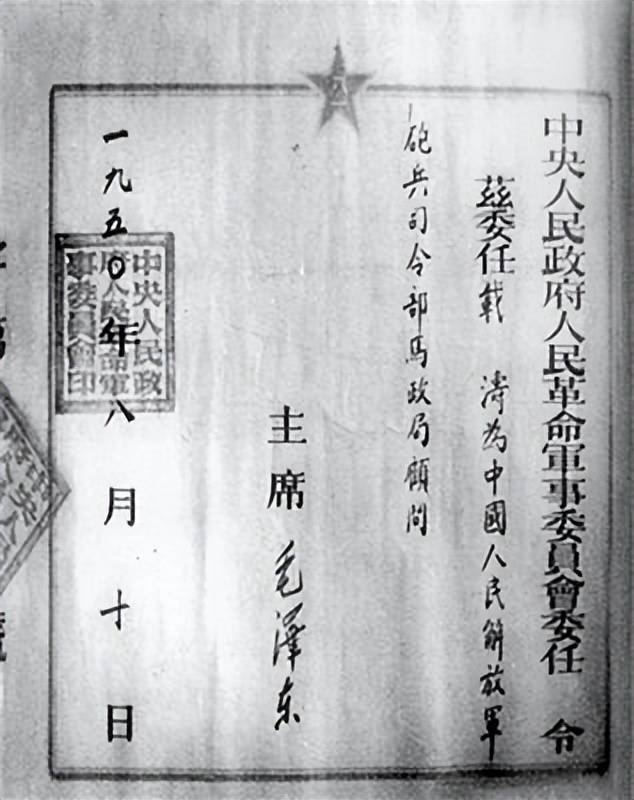 中央人民政府人民革命軍事委員會委任令
茲委任載濤為中國人民解放軍
砲兵司令部馬政局顧問
主席 毛澤东
一九五〇年八月十日
中央人民政
府人民革命軍
事委員會印